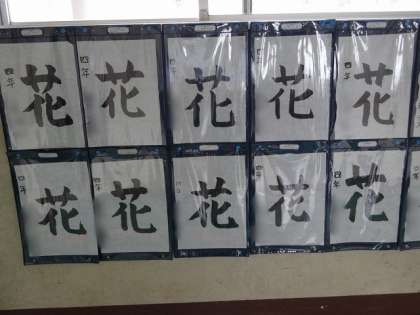 四年 花
四年 花
四年 花
四年 花
四年 花
四年 花
四年 花
四年 花
四年 花
四年 花